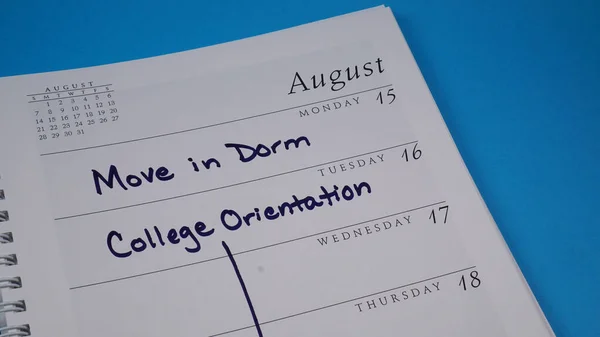 AUGUST
S M T W T F S
1 2 3 4 5 6
7 8 9 10 11 12 13
14 15 16 17 18 19 20
21 22 23 24 25 26 27
28 29 30 31
August
MONDAY 15
Move in Dorm
TUESDAY 16
College Orientation
WEDNESDAY 17
THURSDAY 18